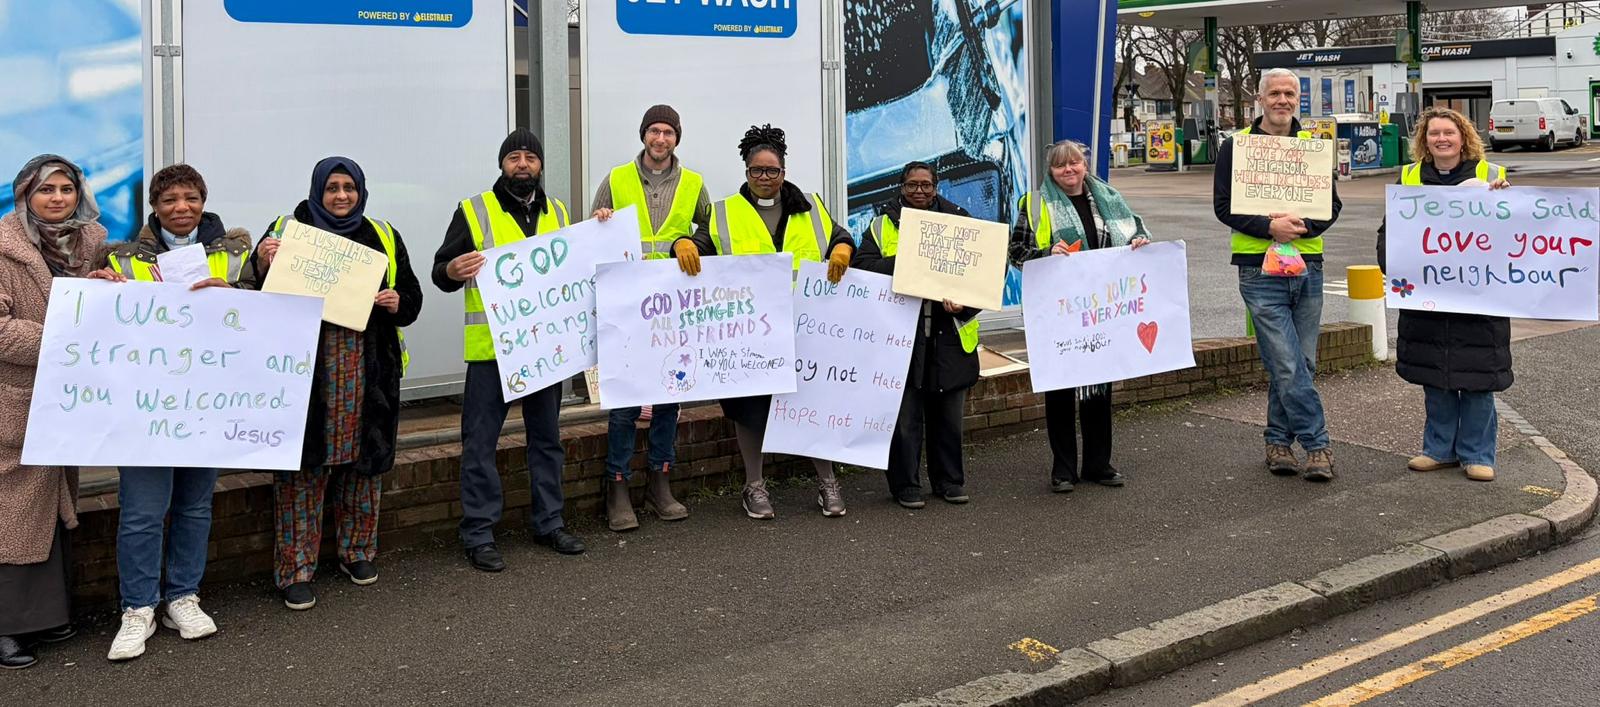 POWERED BY ELECTRAJET
JET WASH
POWERED BY ELECTRAJET
JET WASH
CAR WASH
AdBlue
'I Was a
stranger and
you welcomed
me'- Jesus
MUSLIMS
LOVE
JESUS
TOO
GOD
Welcome
Strang
and f
GOD WELCOMES
ALL STRANGERS
AND FRIENDS
I WAS A
AND YOU WELCOMED
ME'
Love not Hate
Peace not Hate
oy not Hate
Hope not Hate
JOY NOT
HATE
HOPE NOT
HATE
JESUS LOVES
EVERYONE
'Jesus said: love
your neighbour
JESUS SAID
LOVE YOUR
NEIGHBOUR
WHICH INCLUDES
EVERYONE
'Jesus said
Love your
neighbour"